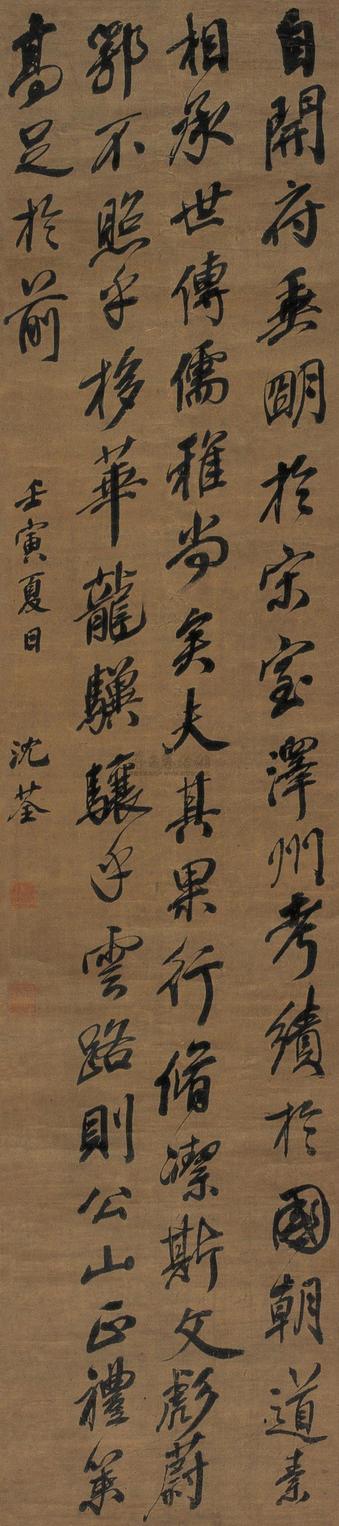 自開府垂明於宋室澤州考績於國朝道素
相承世傳儒雅尚矣夫其果行脩潔斯文彪蔚
鄂不照乎移華龍驥驤乎雲路則公山正禮策
高足於前
壬寅夏日
沈荃